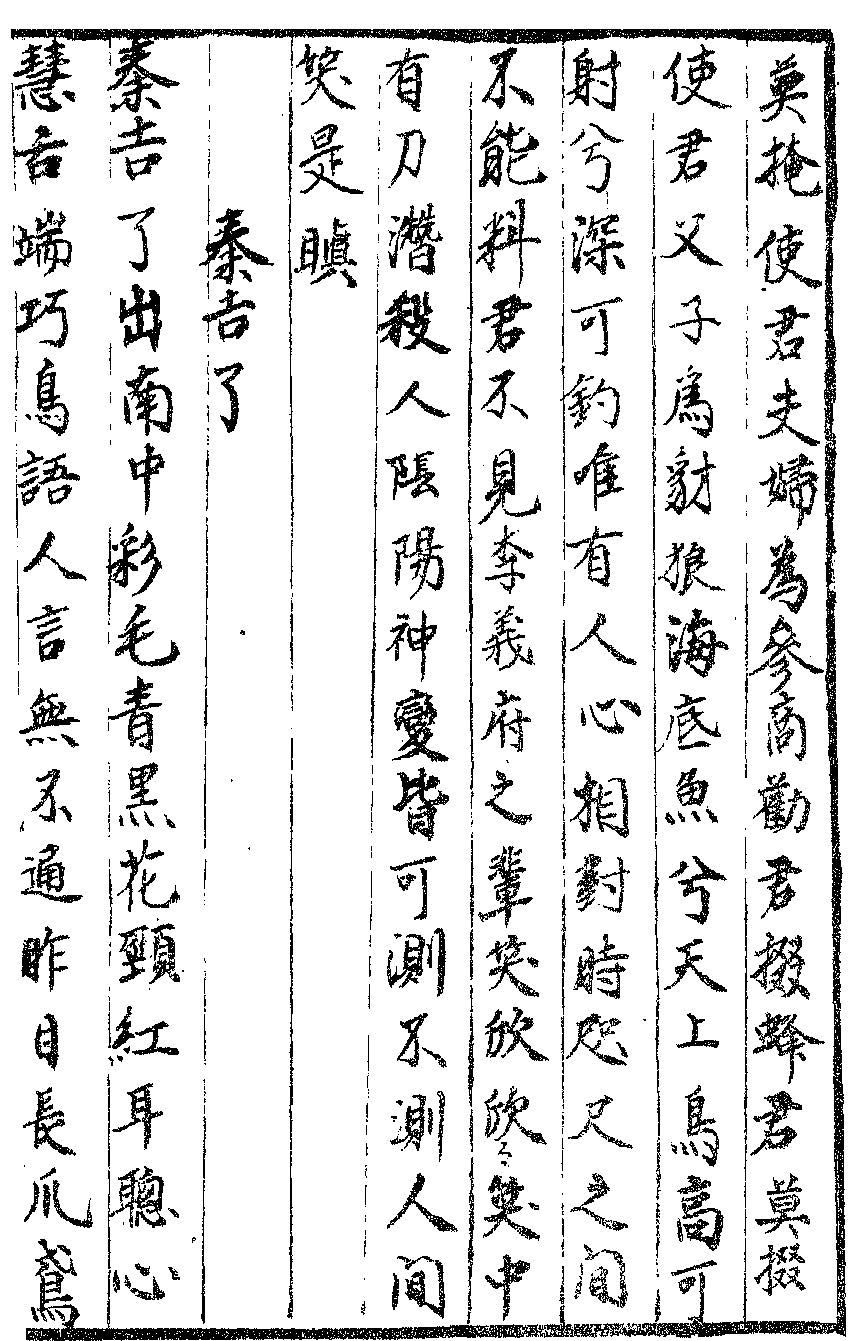 莫掩使君夫婦為參商勸君掇蜂君莫掇
使君父子為豺狼海底魚兮天上鳥高可
射兮深可釣唯有人心相對時咫尺之間
不能料君不見李義府之輩笑欣欣〻笑中
有刀潛殺人陰陽神變皆可測不測人間
笑是瞋
秦吉了
秦吉了出南中彩毛青黑花頸紅耳聰心
慧舌端巧鳥語人言無不通昨日長爪鳶